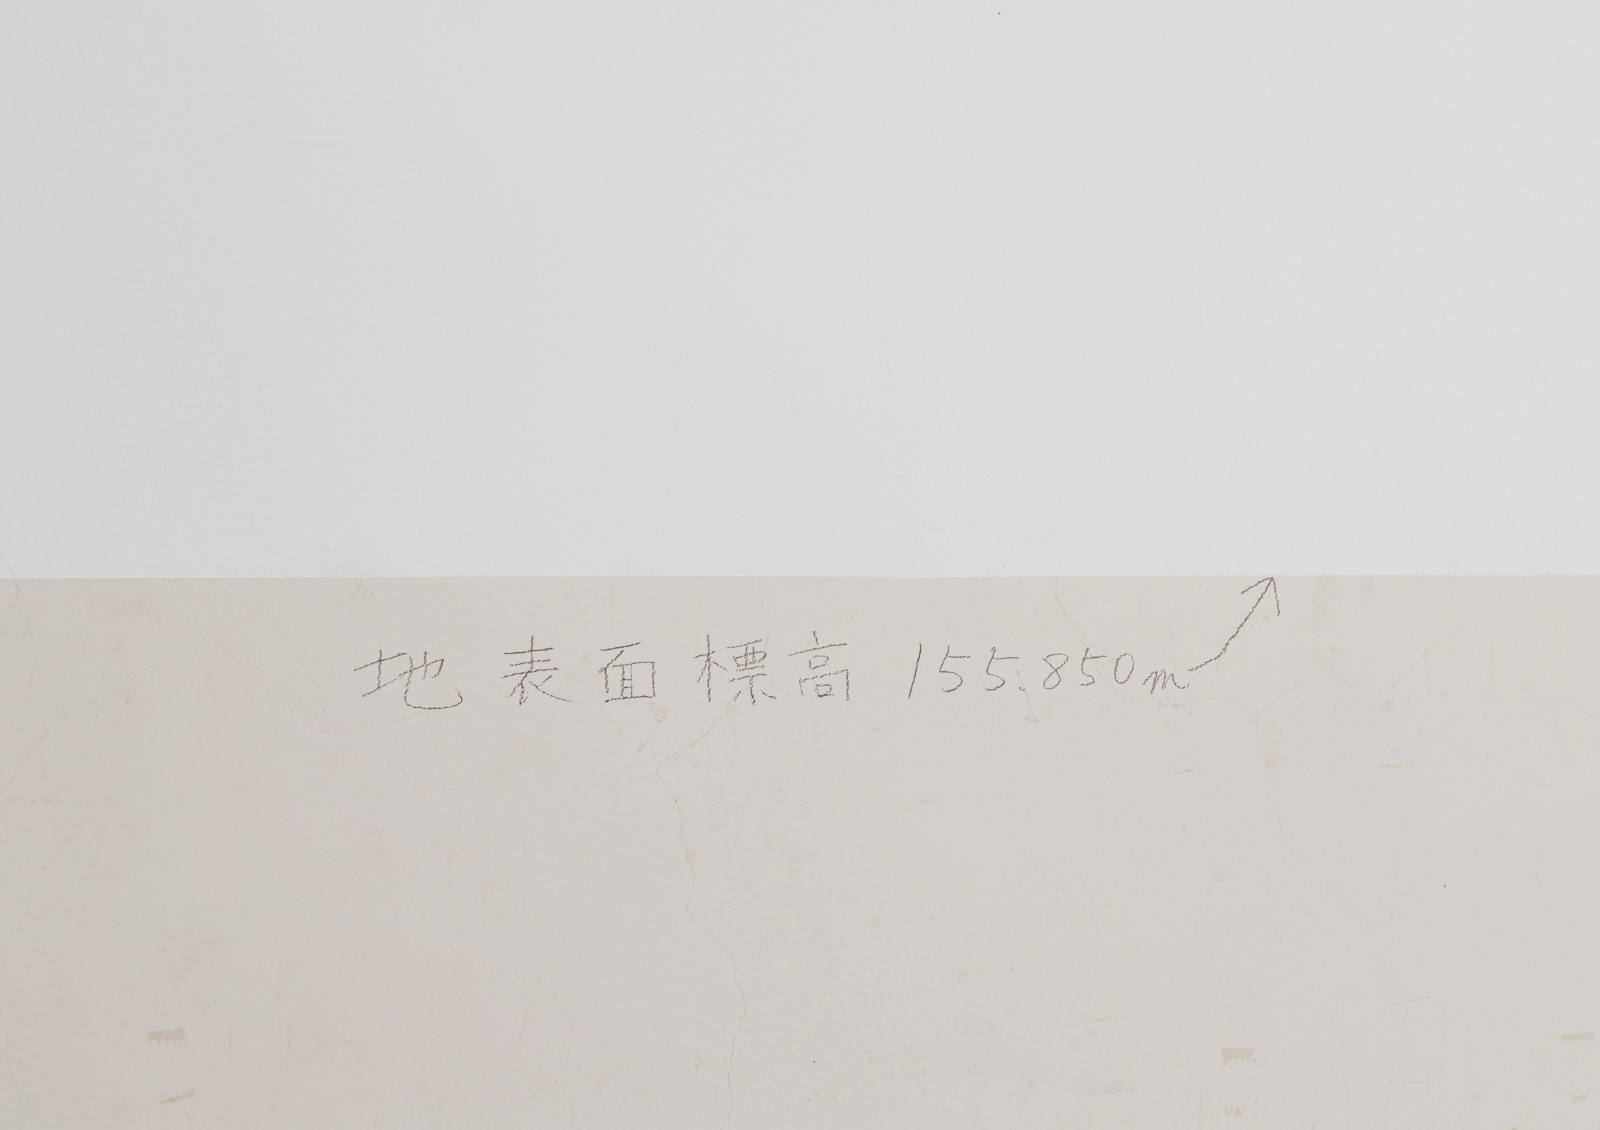 地表面標高 155.850m